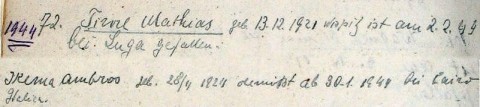 1944 72. Tirne Mathias geb. 13.12.1921 ist am 2.2.49
bei Luga gefallen.
Ambros geb. 28/4 1924 vermißt ab 30.1.1944 bei Cairo
Italien.